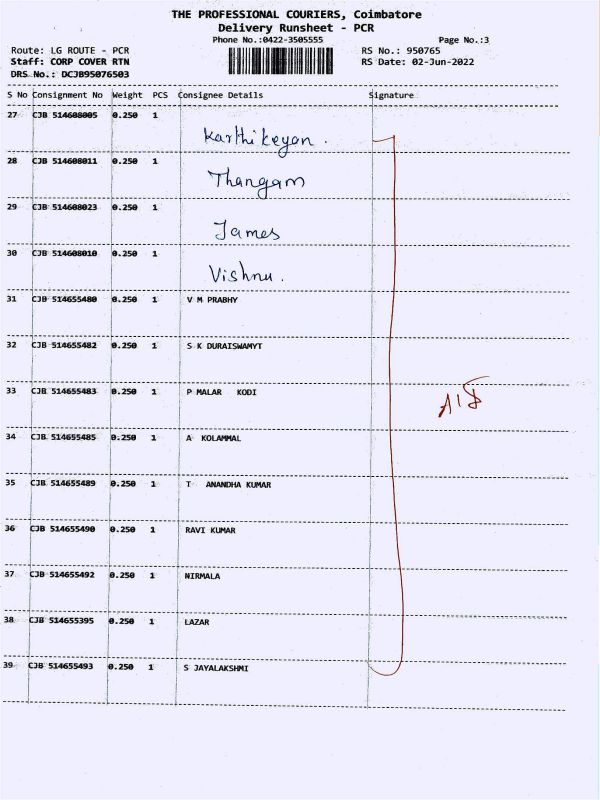 THE PROFESSIONAL COURIERS, Coimbatore
Delivery Runsheet - PCR
Phone No.:0422-3505555 Page No.:3
Route: LG ROUTE - PCR RS No.: 950765
Staff: CORP COVER RTN RS Date: 02-Jun-2022
DRS No.: DCJB95076503
S No Consignment No Weight PCS Consignee Details Signature
27 CJB 514608005 0.250 1
Karthikeyan.
28 CJB 514608011 0.250 1
Thangam
29 CJB 514608023 0.250 1
James
30 CJB 514608010 0.250 1
Vishnu.
31 CJB 514655480 0.250 1 V M PRABHY
32 CJB 514655482 0.250 1 S K DURAISWAMYT
33 CJB 514655483 0.250 1 P MALAR KODI
34 CJB 514655485 0.250 1 A KOLAMMAL
35 CJB 514655489 0.250 1 T ANANDHA KUMAR
36 CJB 514655490 0.250 1 RAVI KUMAR
37 CJB 514655492 0.250 1 NIRMALA
38 CJB 514655395 0.250 1 LAZAR
39 CJB 514655493 0.250 1 S JAYALAKSHMI